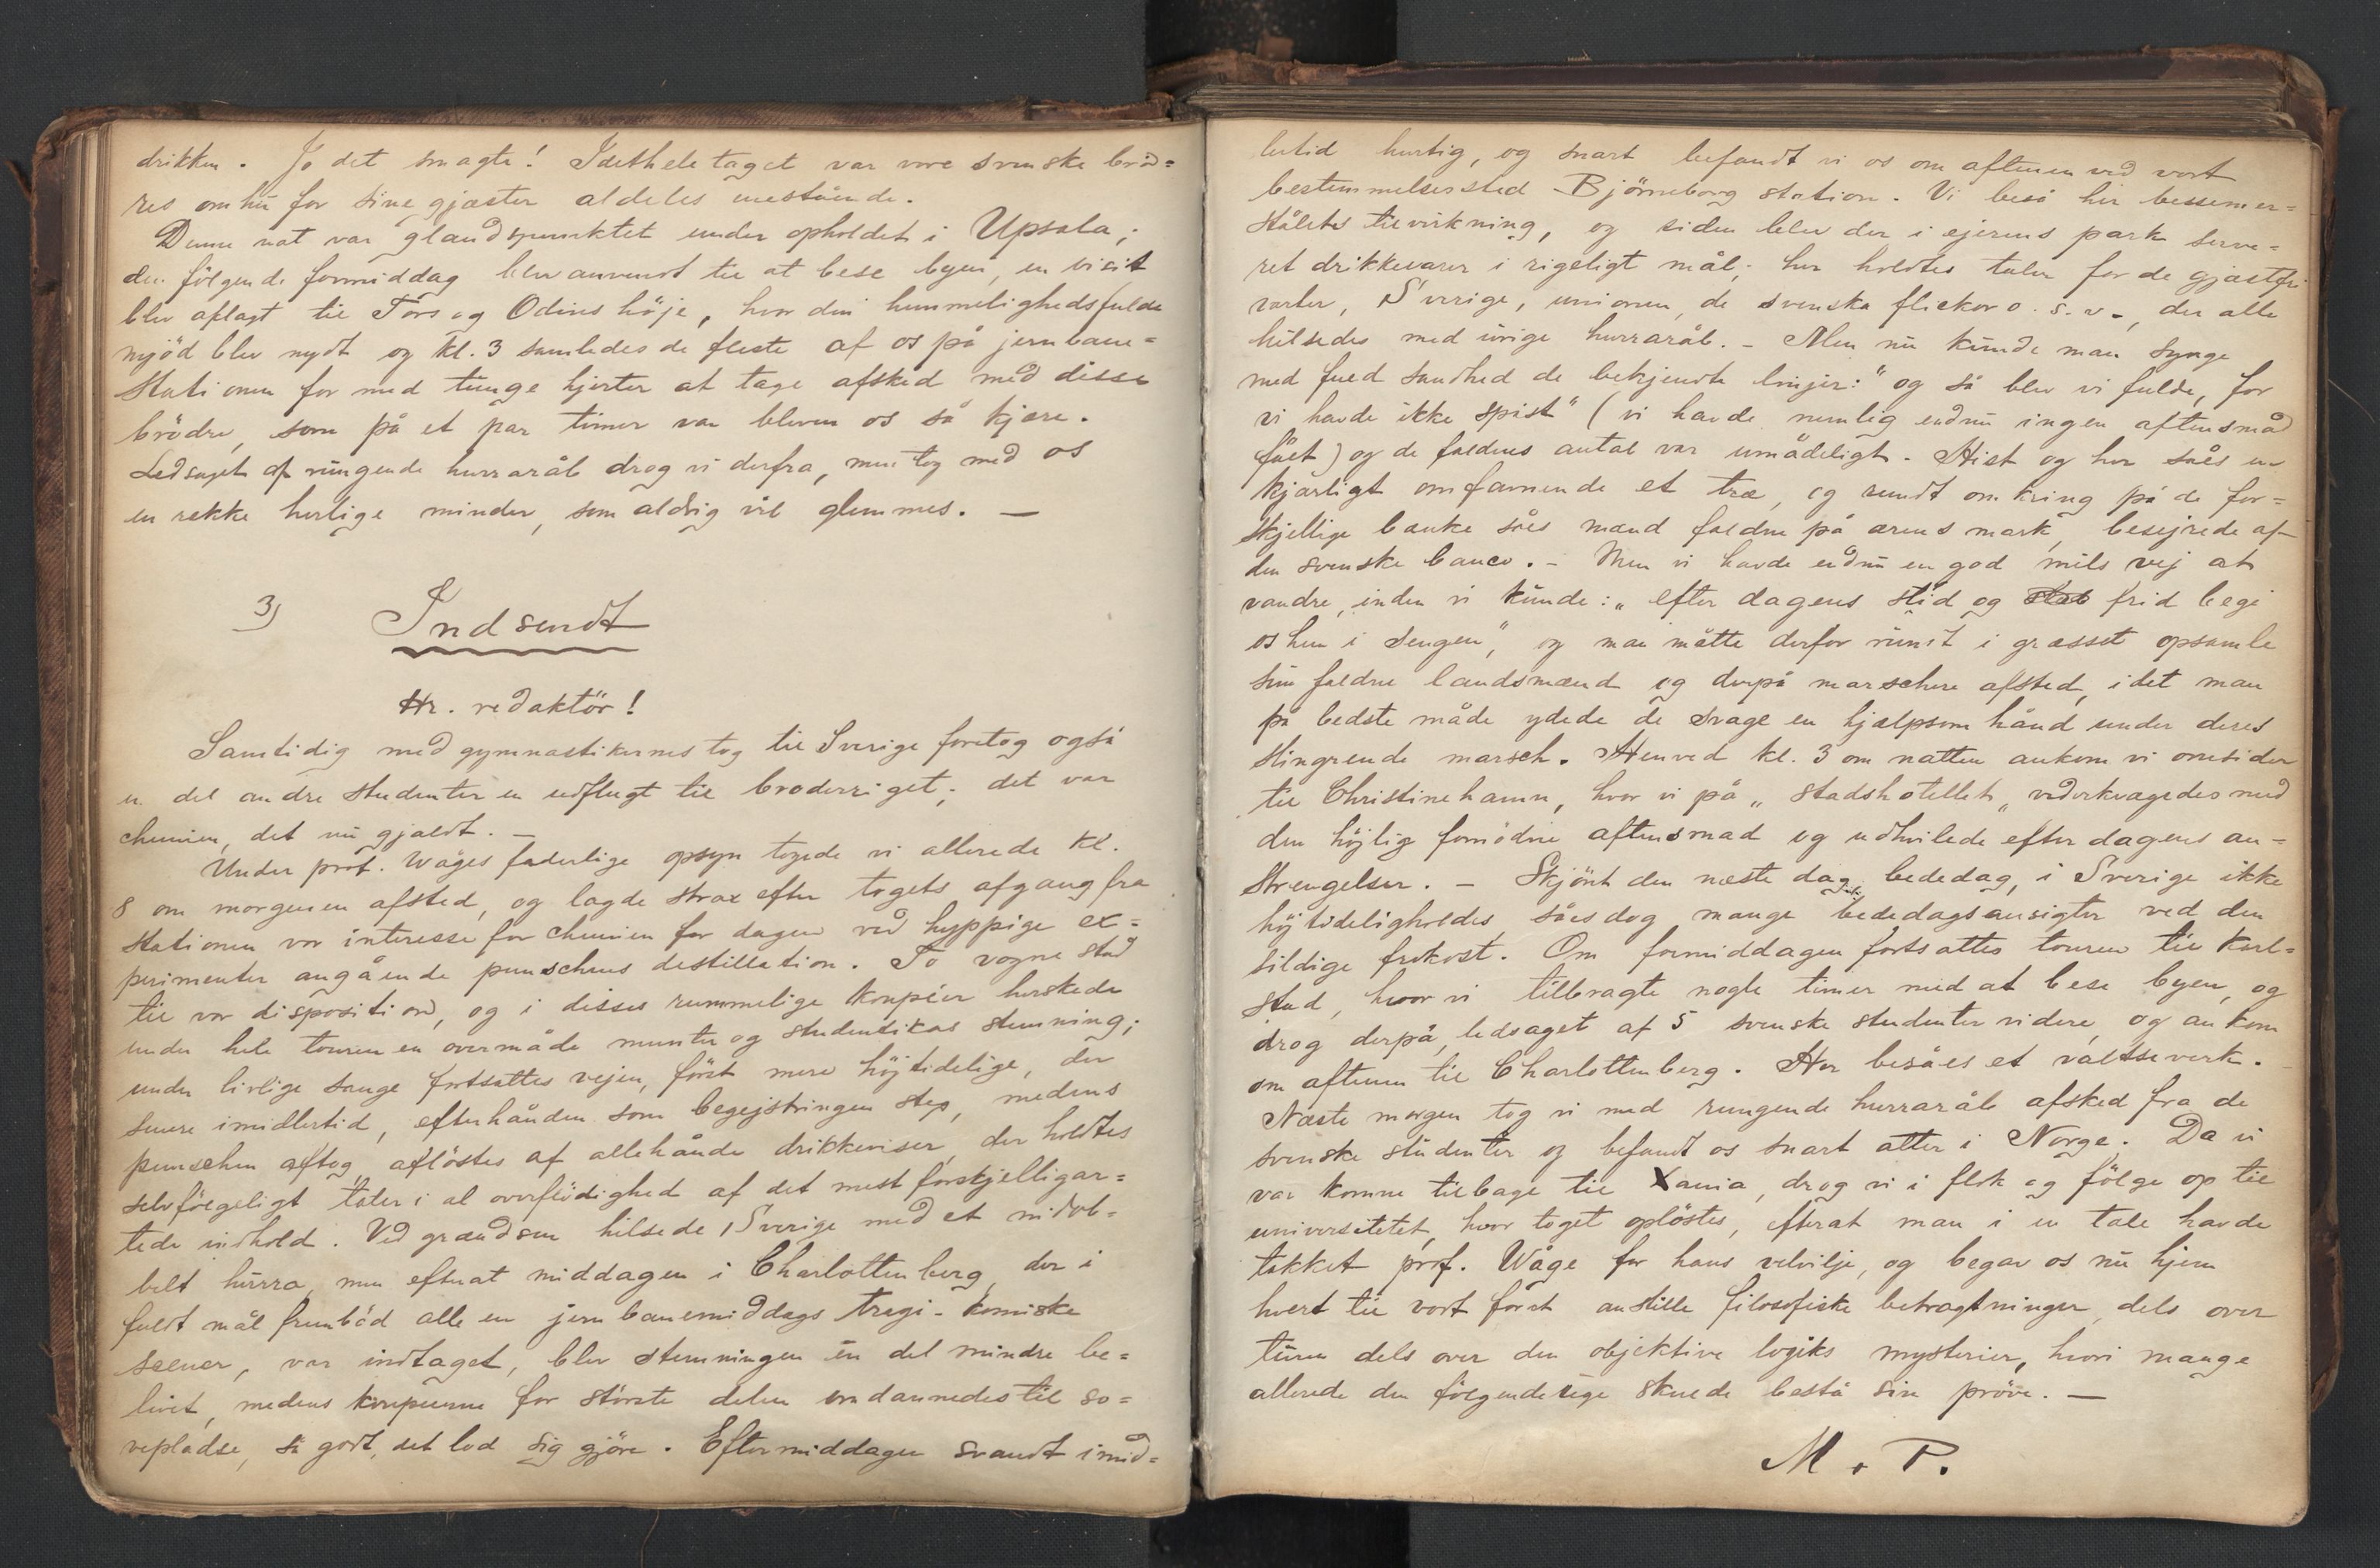 drikken. Jo det smagte! Idethele taget var vore svenske brød=
res omhu for sine gjæster aldeles enestående.
Denne nat var glandspunktet under opholdet i Upsala;
den følgende formiddag blev anvendt til at bese byen, en visit
blev aflagt til Tors og Odins höje, hvor den hemmelighedsfulde
mjöd blev nydt og kl. 3 samledes de fleste af os på jernbane=
stationen for med tunge hjerter at tage afsked med disse
brödre, som på et par timer var bleven os så kjære.
Ledsaget af rungende hurraråb drog vi derfra, men tog med os
en rekke herlige minder, som aldrig vil glemmes. —
3) Indsendt
Hr. redaktör!
Samtidig med gymnastikernes tog til Sverige foretog også
en del andre studenter en udflugt til broderriget; det var
chemien, det nu gjaldt. —
Under prof. Wåges faderlige opsyn togede vi allerede kl.
8 om morgenen afsted, og lagde strax efter togets afgang fra
stationen vor interesse for chemien for dagen ved hyppige ex=
perimenter angående punschens destillation. To vogne stod
til vor disposition, og i disses rummelige koupéer herskede
under hele touren en overmåde munter og studentikos stemning;
under livlige sange fortsattes vejen, först mere höjtidelige, der
senere imidlertid, efterhånden som begejstringen steg, medens
punschen aftog, aflöstes af allehånde drikkeviser, der holdtes
selvfölgeligt taler i al overflödighed af det mest forskjelligar=
tede indhold. Ved grændsen hilsede Sverige med et nidob=
belt hurra, men efterat middagen i Charlottenberg, der i
fuldt mål frembød alle en jernbanemiddags tragi-komiske
scener, var indtaget, blev stemningen en del mindre be=
livet, medens koupeerne for störste delen omdannedes til so=
vepladse, så godt det lod sig gjöre. Eftermiddagen svandt imid=
lertid hurtig, og snart befandt vi os om aftenen ved vort
bestemmelsessted Björneborg station. Vi beså her bessemer=
stålets tilvirkning, og siden blev der i ejerens park serve=
ret drikkevarer i rigeligt mål; her holdtes taler for de gjæstfri
værter, Sverige, unionen, de svenska flickor o. s. v., der alle
hilsedes med ivrige hurraråb. – Men nu kunde man synge
med fuld sandhed de bekjendte linjer: "og så blev vi fulde, for
vi havde ikke spist" (vi havde nemlig endnu ingen aftensmåd
fået) og de faldnes antal var umådeligt. Hist og her såes en
kjærligt omfavnende et træ, og rundt omkring på de for=
skjellige bænke såes mænd faldne på ærens mark, besejrede af
den svenske banco. – Men vi havde endnu en god mils vej at
vandre, inden vi kunde: "efter dagens slid og frid begi
os hen i sengen", og man måtte derfor rundt i græsset opsamle
sine faldne landsmænd og derpå marschere afsted, idet man
på bedste måde ydede de svage en hjælpsom hånd under deres
slingrende marsch. Henved kl. 3 om natten ankom vi omsider
til Christinehamn, hvor vi på "stadshotellet" vederkvægedes med
den höjlig fornödne aftensmad og udhvilede efter dagens an=
strengelser. – Skjönt den næste dag, bededag, i Sverige ikke
höjtideligholdes, såes dog mange bededagsansigter ved den
sildige frokost. Om formiddagen fortsattes touren til Karl=
stad, hvor vi tilbragte nogle timer med at bese byen, og
drog derpå, ledsaget af 5 svenske studenter videre, og ankom
om aftenen til Charlottenberg. Her besåes et valtseverk.
Næste morgen tog vi med rungende hurraråb afsked fra de
svenske studenter og befandt os snart atter i Norge. Da vi
var komne tilbage til Xania, drog vi i flok og fölge op til
universitetet, hvor toget oplöstes, efterat man i en tale havde
takket prof. Wåge for hans velvilje, og begav os nu hjem
hvert til vort for at anstille filosofiske betragtninger, dels over
turen dels over den objektive logiks mysterier, hvori mange
allerede den fölgende uge skulde bestå sin pröve. —
M. P.